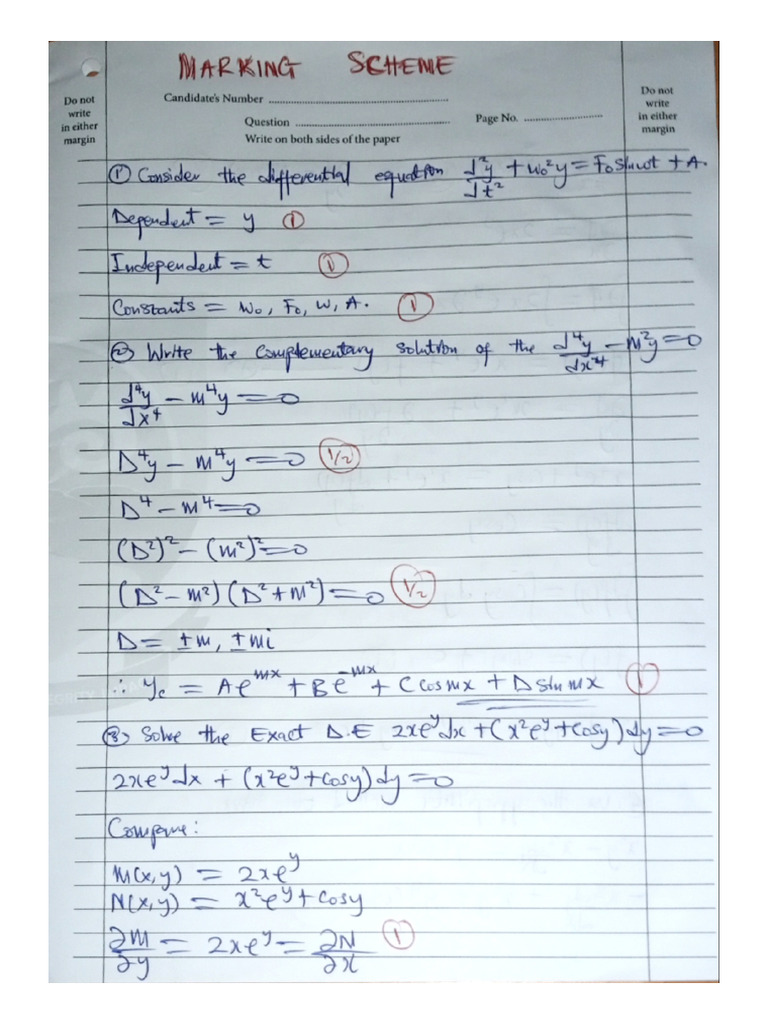 MARKING SCHEME
Do not write in either margin
Candidate's Number
Question
Page No.
Write on both sides of the paper
Do not write in either margin
① Consider the differential equation d²y/dt² + w₀²y = F₀ sin wt + A.
Dependent = y ①
Independent = t ①
Constants = w₀, F₀, w, A. ①
② Write the Complementary Solution of the d⁴y/dx⁴ – m²y = 0
d⁴y/dx⁴ – m⁴y = 0
D⁴y – m⁴y = 0 (1/2)
D⁴ – m⁴ = 0
(D²)² – (m²)² = 0
(D² – m²)(D² + m²) = 0 (1/2)
D = ±m, ±mi
∴ yc = Ae^mx + Be^-mx + C cos mx + D sin mx ①
③ Solve the Exact D.E 2xe^y dx + (x²e^y + cosy) dy = 0
2xe^y dx + (x²e^y + cosy) dy = 0
Compare:
M(x,y) = 2xe^y
N(x,y) = x²e^y + cosy
∂M/∂y = 2xe^y = ∂N/∂x ①